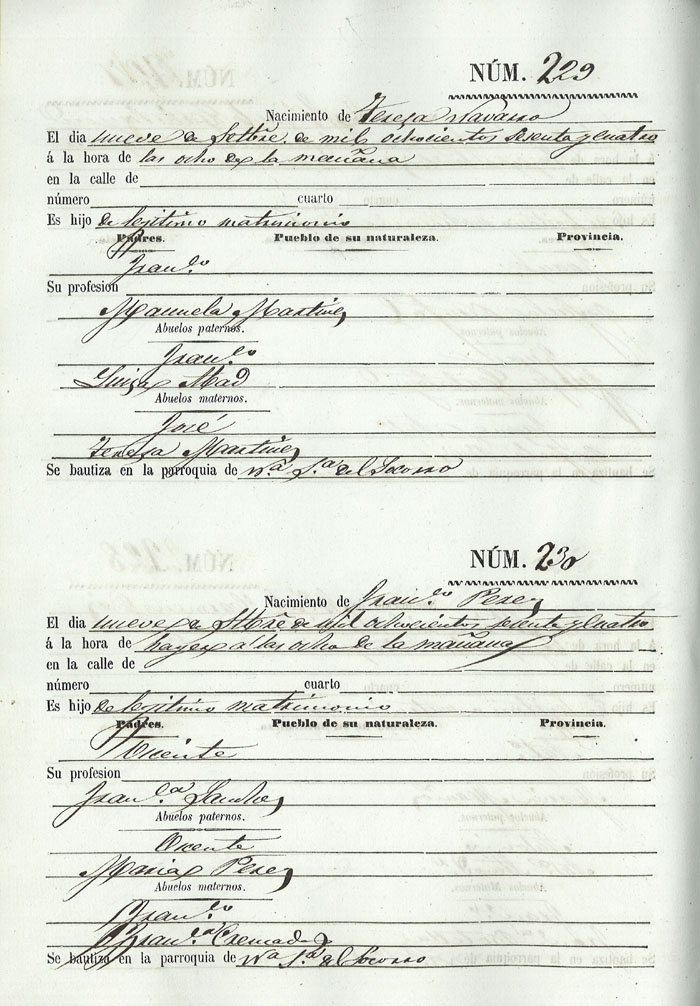 NÚM. 229
Nacimiento de Teresa Navarro
El dia nueve de Setbre. de mil ochocientos sesenta y cuatro
á la hora de las ocho de la mañana
en la calle de
número cuarto
Es hijo de legitimo matrimonio
Padres. Pueblo de su naturaleza. Provincia.
Franco.
Su profesion
Manuela Martinez
Abuelos paternos.
Franco.
Luisa Mad
Abuelos maternos.
José
Teresa Martinez
Se bautiza en la parroquia de Na. Sa. del Socorro
NÚM. 230
Nacimiento de Franco. Perez
El dia nueve de Stbre de mil ochocientos sesenta y cuatro
á la hora de hayer a las ocho de la mañana
en la calle de
número cuarto
Es hijo de legitimo matrimonio
Padres. Pueblo de su naturaleza. Provincia.
Vicente
Su profesion
Franca. Sanchez
Abuelos paternos.
Vicente
Maria Perez
Abuelos maternos.
Franco.
Franca. Cremades
Se bautiza en la parroquia de Na. Sa. del Socorro